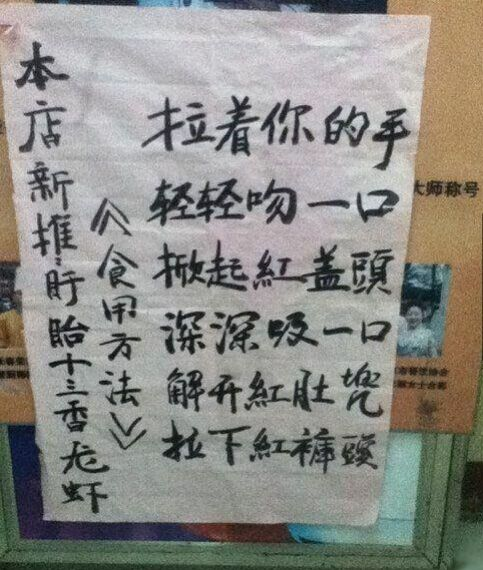 本店新推:盱眙十三香龙虾
《食用方法》
拉着你的手
轻轻吻一口
掀起紅盖頭
深深吸一口
解开紅肚兜
拉下紅裤頭
大师称号